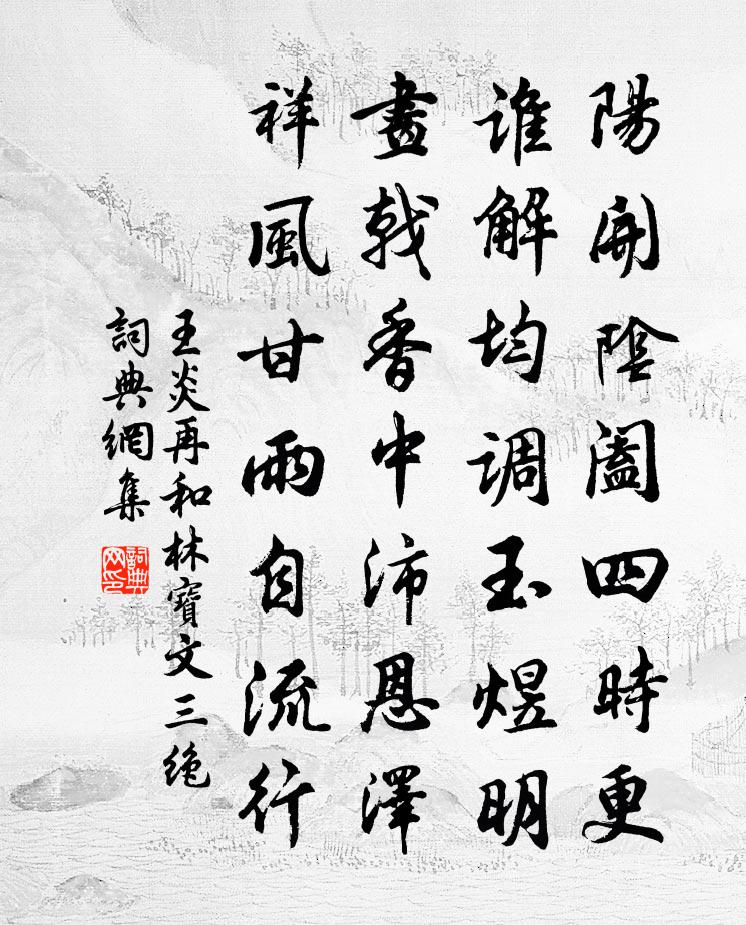 陽開陰闔四時更
誰解均調玉煜明
畫戟香中沛恩澤
祥風甘雨自流行
王炎再和林寶文三絶
詞典網集
詞典网印